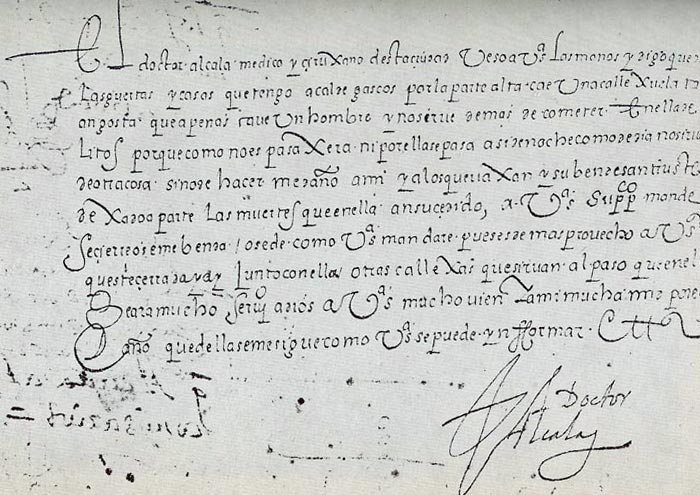 El doctor alcala medico y çiruxano desta çiudad beso a Vs las manos y digo que
las guertas y casas que tengo a cal de gascos por la parte alta cae una callexuela
angosta que apenas cave un hombre y no sirve de mas de cometer en ella de
litos porque como no es pasaxera ni por ella se pasa asi de noche como de dia no sirve
de otra cosa sino de hacer me daño a mi y a los que vaxan y suben
de xado a parte las muertes que en ella an suçedido, a Vs suppco mande
se çierre o se me benda / o se de como Vs mandare pues es de mas provecho a Vs
que este çerrada y ay junto con ella otras callexas que sirvan al paso que en el
se ara mucho serviº a dios a Vs mucho vien y a mi mucha mrd por el
Daño que della se me sigue como Vs se puede ynfformar
Doctor
Alcala